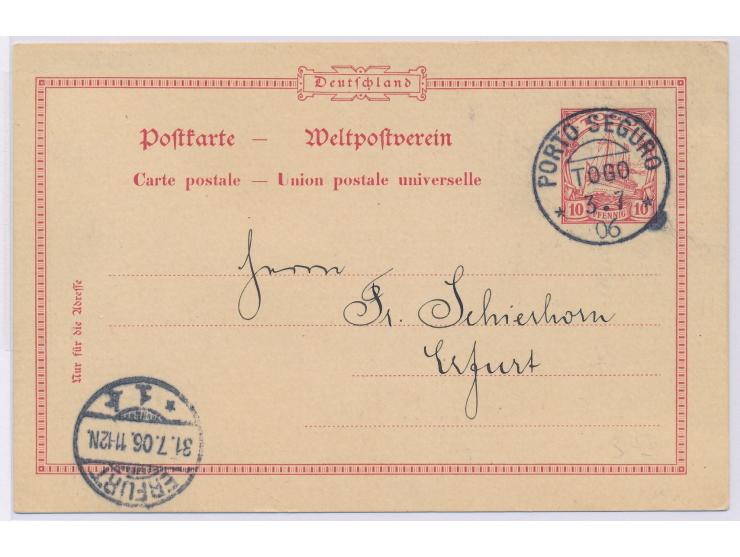 Deutschland
Postkarte — Weltpostverein
Carte postale — Union postale universelle
PORTO SEGURO
TOGO
3.7
06
10 PFENNIG 10
Herrn
Fr. Schierhorn
Erfurt
Nur für die Adresse
ERFURT
31.7.06.11-12N.
* 1 k